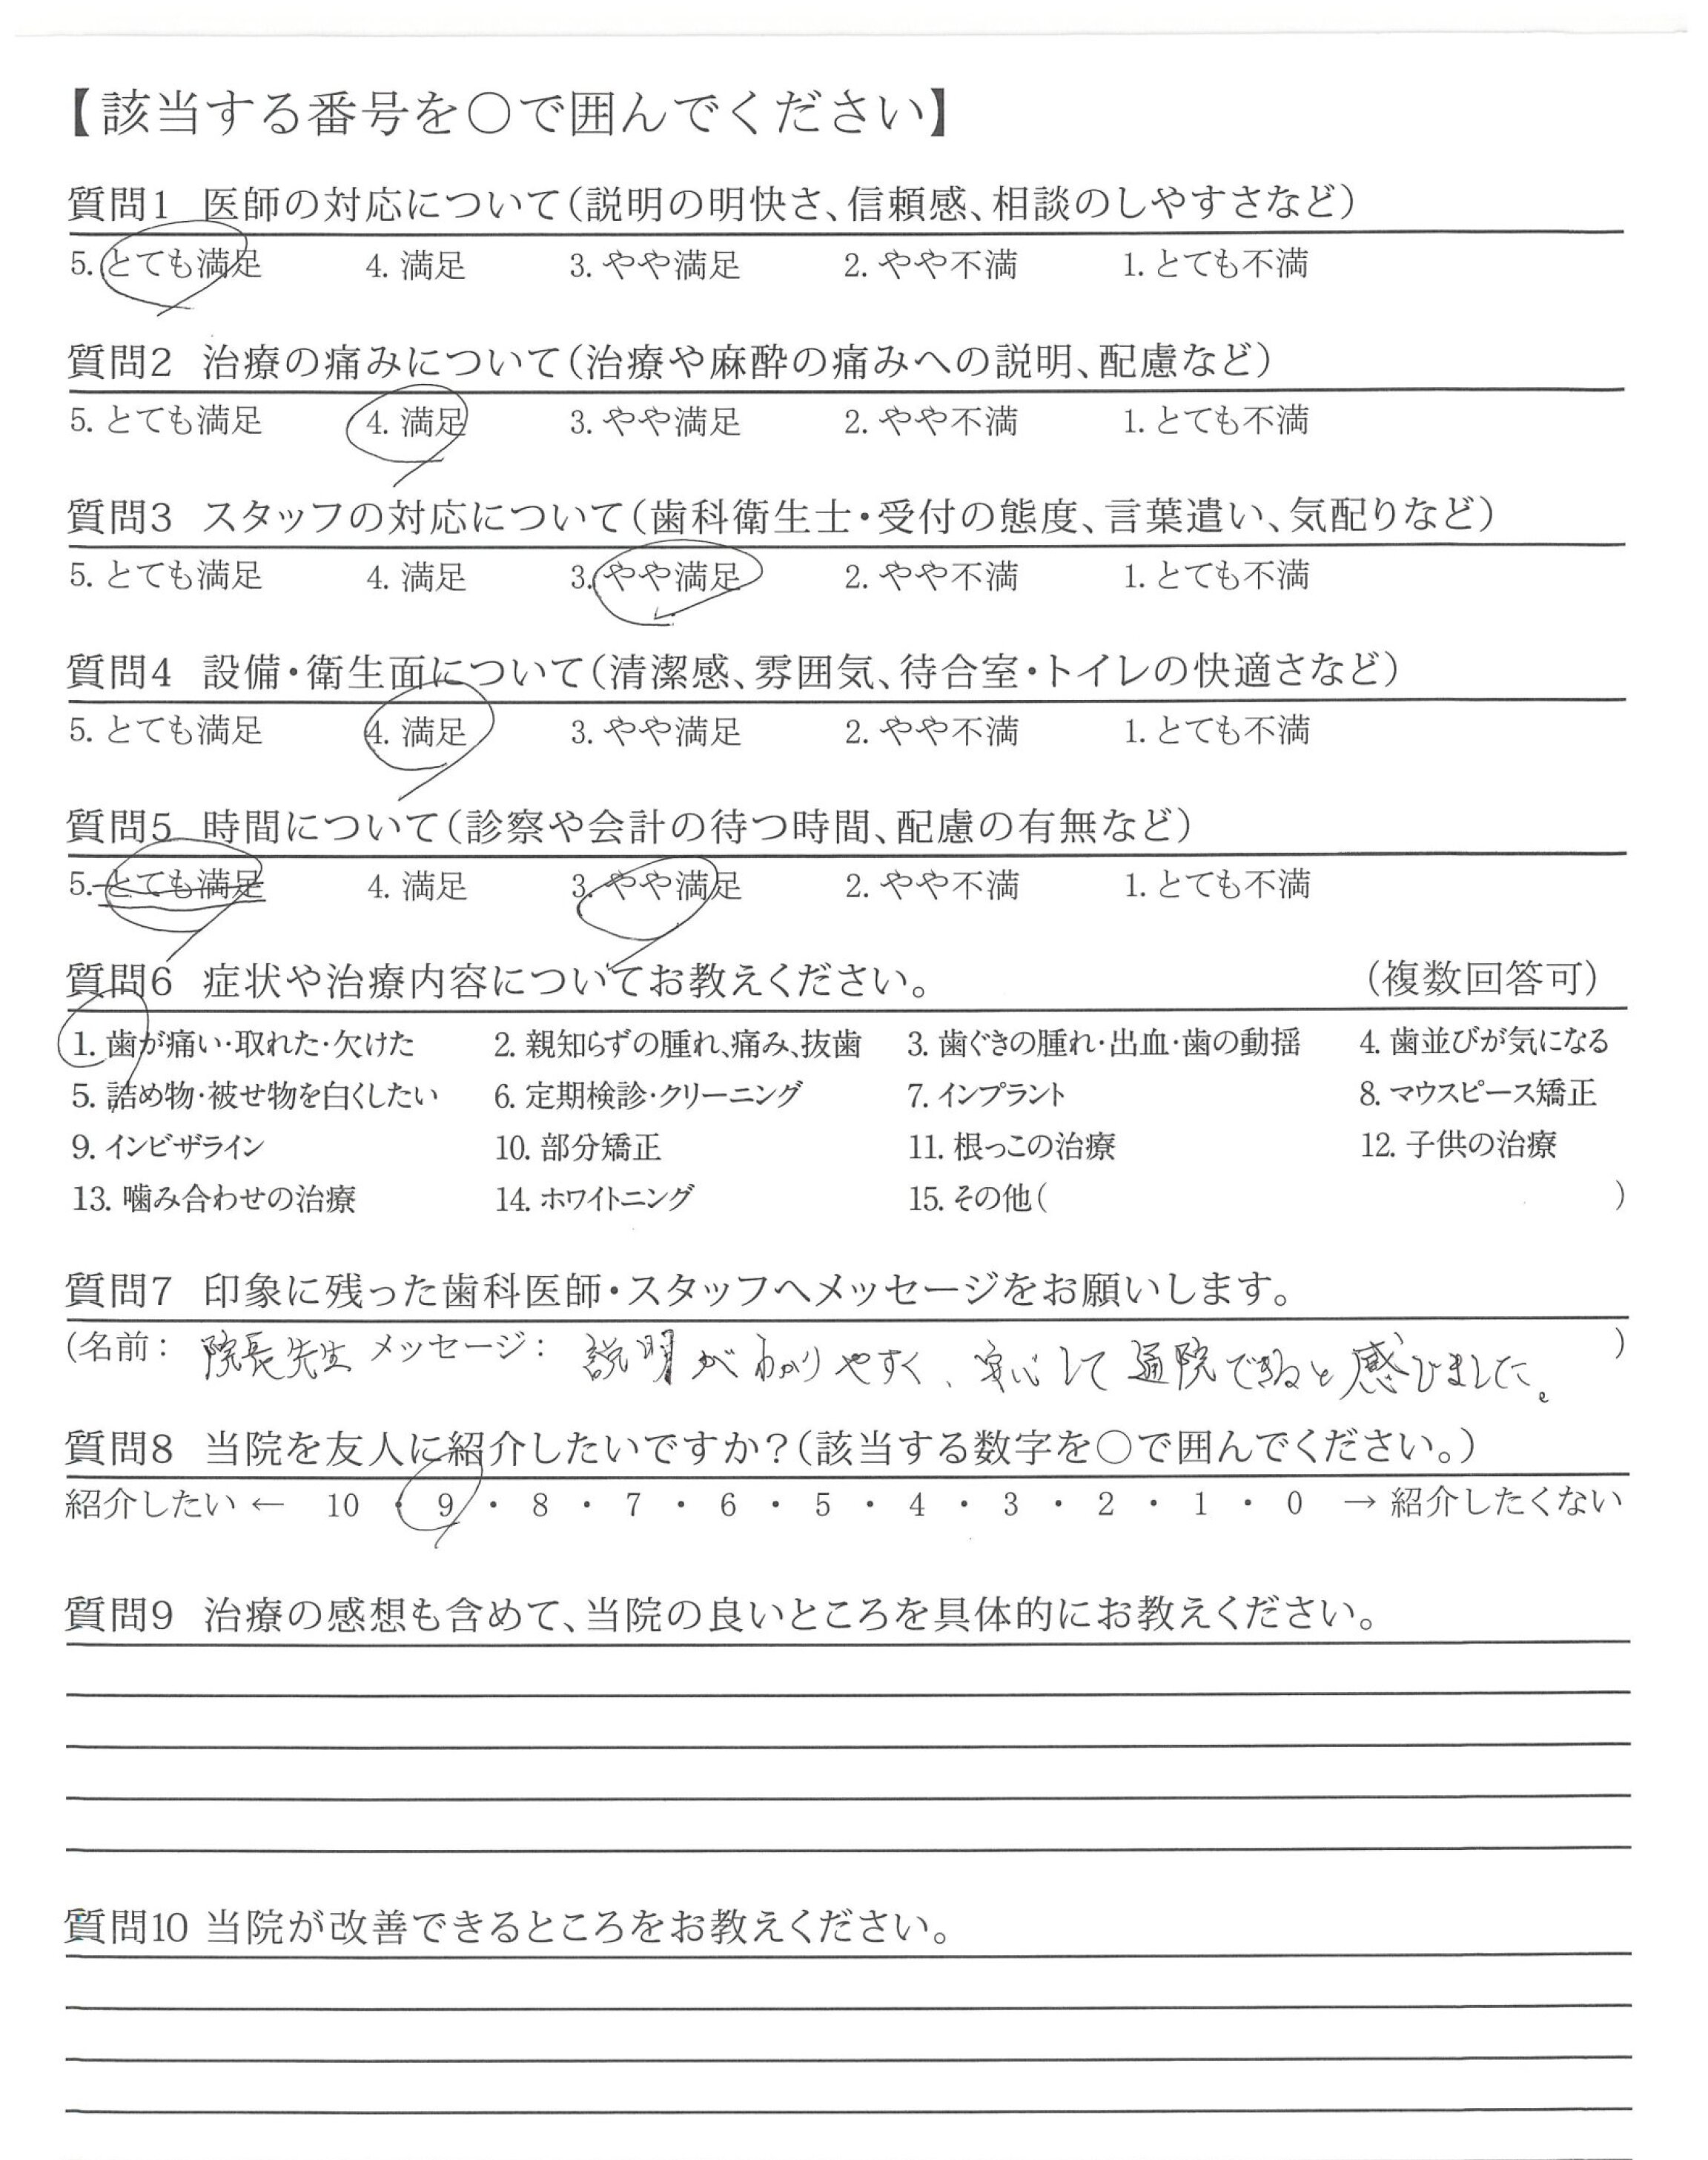 【該当する番号を○で囲んでください】
質問1 医師の対応について(説明の明快さ、信頼感、相談のしやすさなど)
5. とても満足 4. 満足 3. やや満足 2. やや不満 1. とても不満
質問2 治療の痛みについて(治療や麻酔の痛みへの説明、配慮など)
5. とても満足 4. 満足 3. やや満足 2. やや不満 1. とても不満
質問3 スタッフの対応について(歯科衛生士・受付の態度、言葉遣い、気配りなど)
5. とても満足 4. 満足 3. やや満足 2. やや不満 1. とても不満
質問4 設備・衛生面について(清潔感、雰囲気、待合室・トイレの快適さなど)
5. とても満足 4. 満足 3. やや満足 2. やや不満 1. とても不満
質問5 時間について(診察や会計の待つ時間、配慮の有無など)
5. とても満足 4. 満足 3. やや満足 2. やや不満 1. とても不満
質問6 症状や治療内容についてお教えください。 (複数回答可)
1. 歯が痛い・取れた・欠けた 2. 親知らずの腫れ、痛み、抜歯 3. 歯ぐきの腫れ・出血・歯の動揺 4. 歯並びが気になる
5. 詰め物・被せ物を白くしたい 6. 定期検診・クリーニング 7. インプラント 8. マウスピース矯正
9. インビザライン 10. 部分矯正 11. 根っこの治療 12. 子供の治療
13. 噛み合わせの治療 14. ホワイトニング 15. その他( )
質問7 印象に残った歯科医師・スタッフへメッセージをお願いします。
(名前: 院長先生 メッセージ: 説明がわかりやすく、安心して通院できると感じました。 )
質問8 当院を友人に紹介したいですか?(該当する数字を○で囲んでください。)
紹介したい ← 10 ・ 9 ・ 8 ・ 7 ・ 6 ・ 5 ・ 4 ・ 3 ・ 2 ・ 1 ・ 0 → 紹介したくない
質問9 治療の感想も含めて、当院の良いところを具体的にお教えください。
質問10 当院が改善できるところをお教えください。